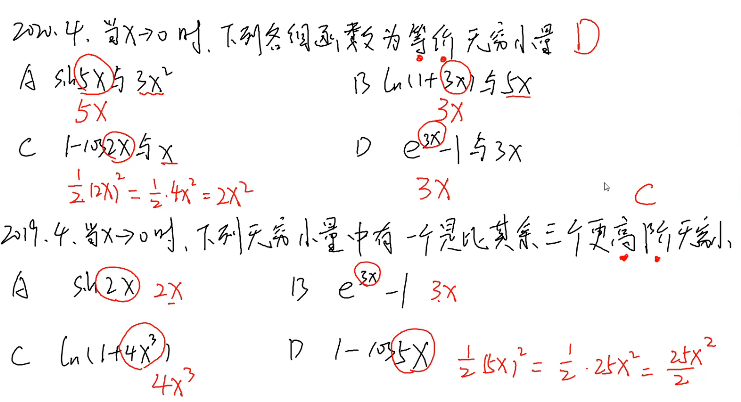 2020.4.当x→0时,下列各组函数为等价无穷小量 D
A sin5x与3x² B ln(1+3x)与5x
5x 3x
C 1-cos2x与x D e^{3x}-1与3x
½(2x)²=½·4x²=2x² 3x
C
2019.4.当x→0时,下列无穷小量中有一个是比其余三个更高阶无穷小
A sin2x 2x B e^{3x}-1 3x
C ln(1+4x³) D 1-cos5x ½(5x)²=½·25x²=25x²/2
4x³